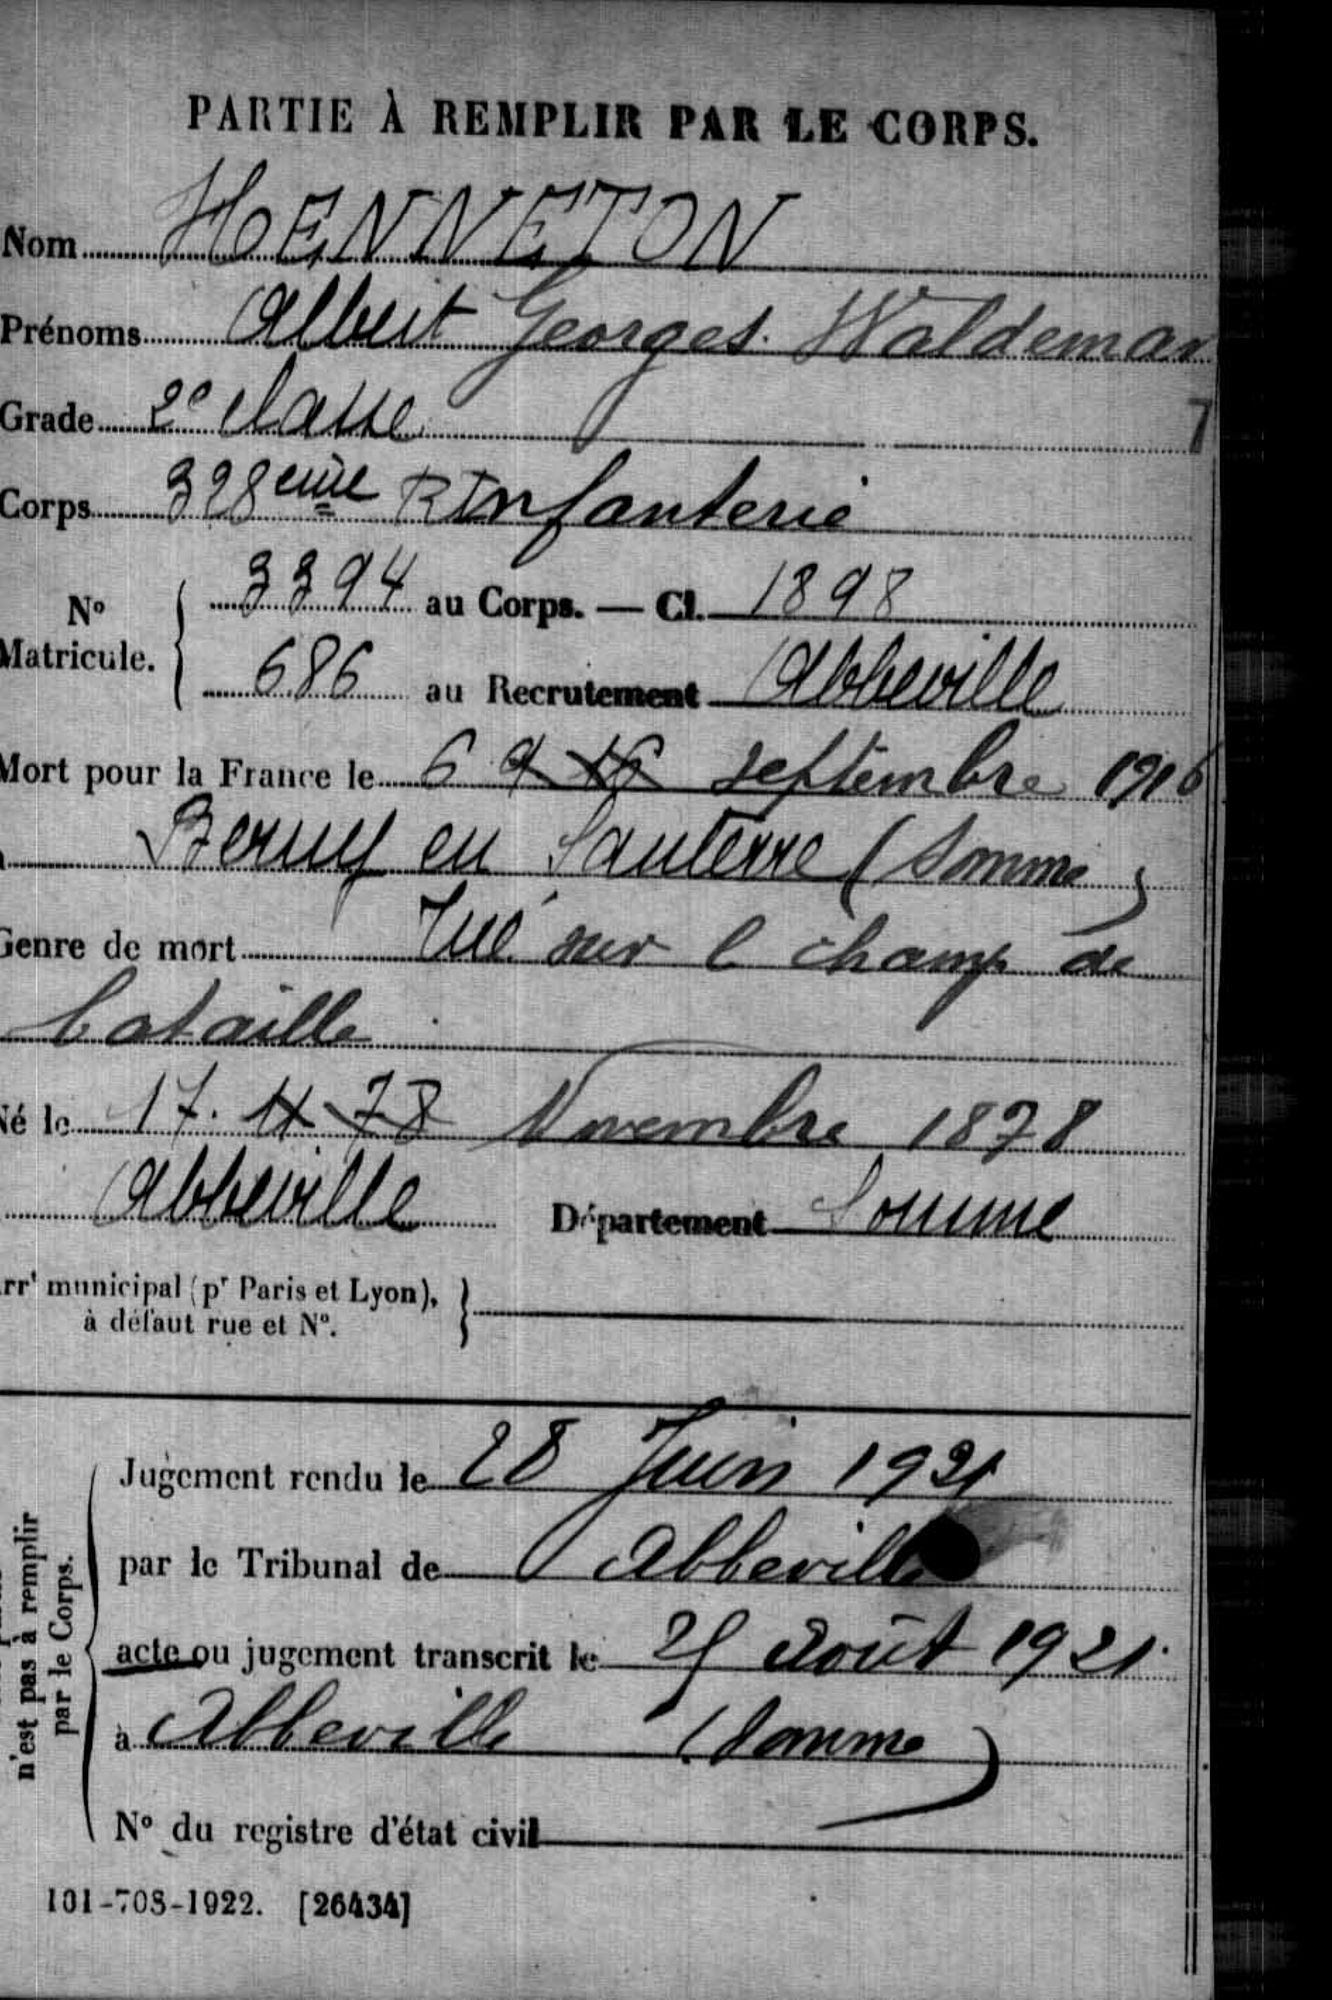 PARTIE À REMPLIR PAR LE CORPS.
Nom HENNETON
Prénoms Albert Georges Waldemar
Grade 2e classe
7
Corps 328eme R Infanterie
No Matricule. 3394 au Corps. — Cl. 1898
686 au Recrutement Abbeville
Mort pour la France le 6 9 16 septembre 1916
Berny en Santerre (Somme)
Genre de mort Tué sur l champ de
bataille
Né le 17. 11 78 Novembre 1878
Abbeville Département Somme
rrt municipal (pr Paris et Lyon),
à défaut rue et No.
n'est pas à remplir
par le Corps.
Jugement rendu le 28 Juin 1921
par le Tribunal de Abbeville
acte ou jugement transcrit le août 1921.
à Abbeville (Somme)
No du registre d'état civil
101-708-1922. [26434]